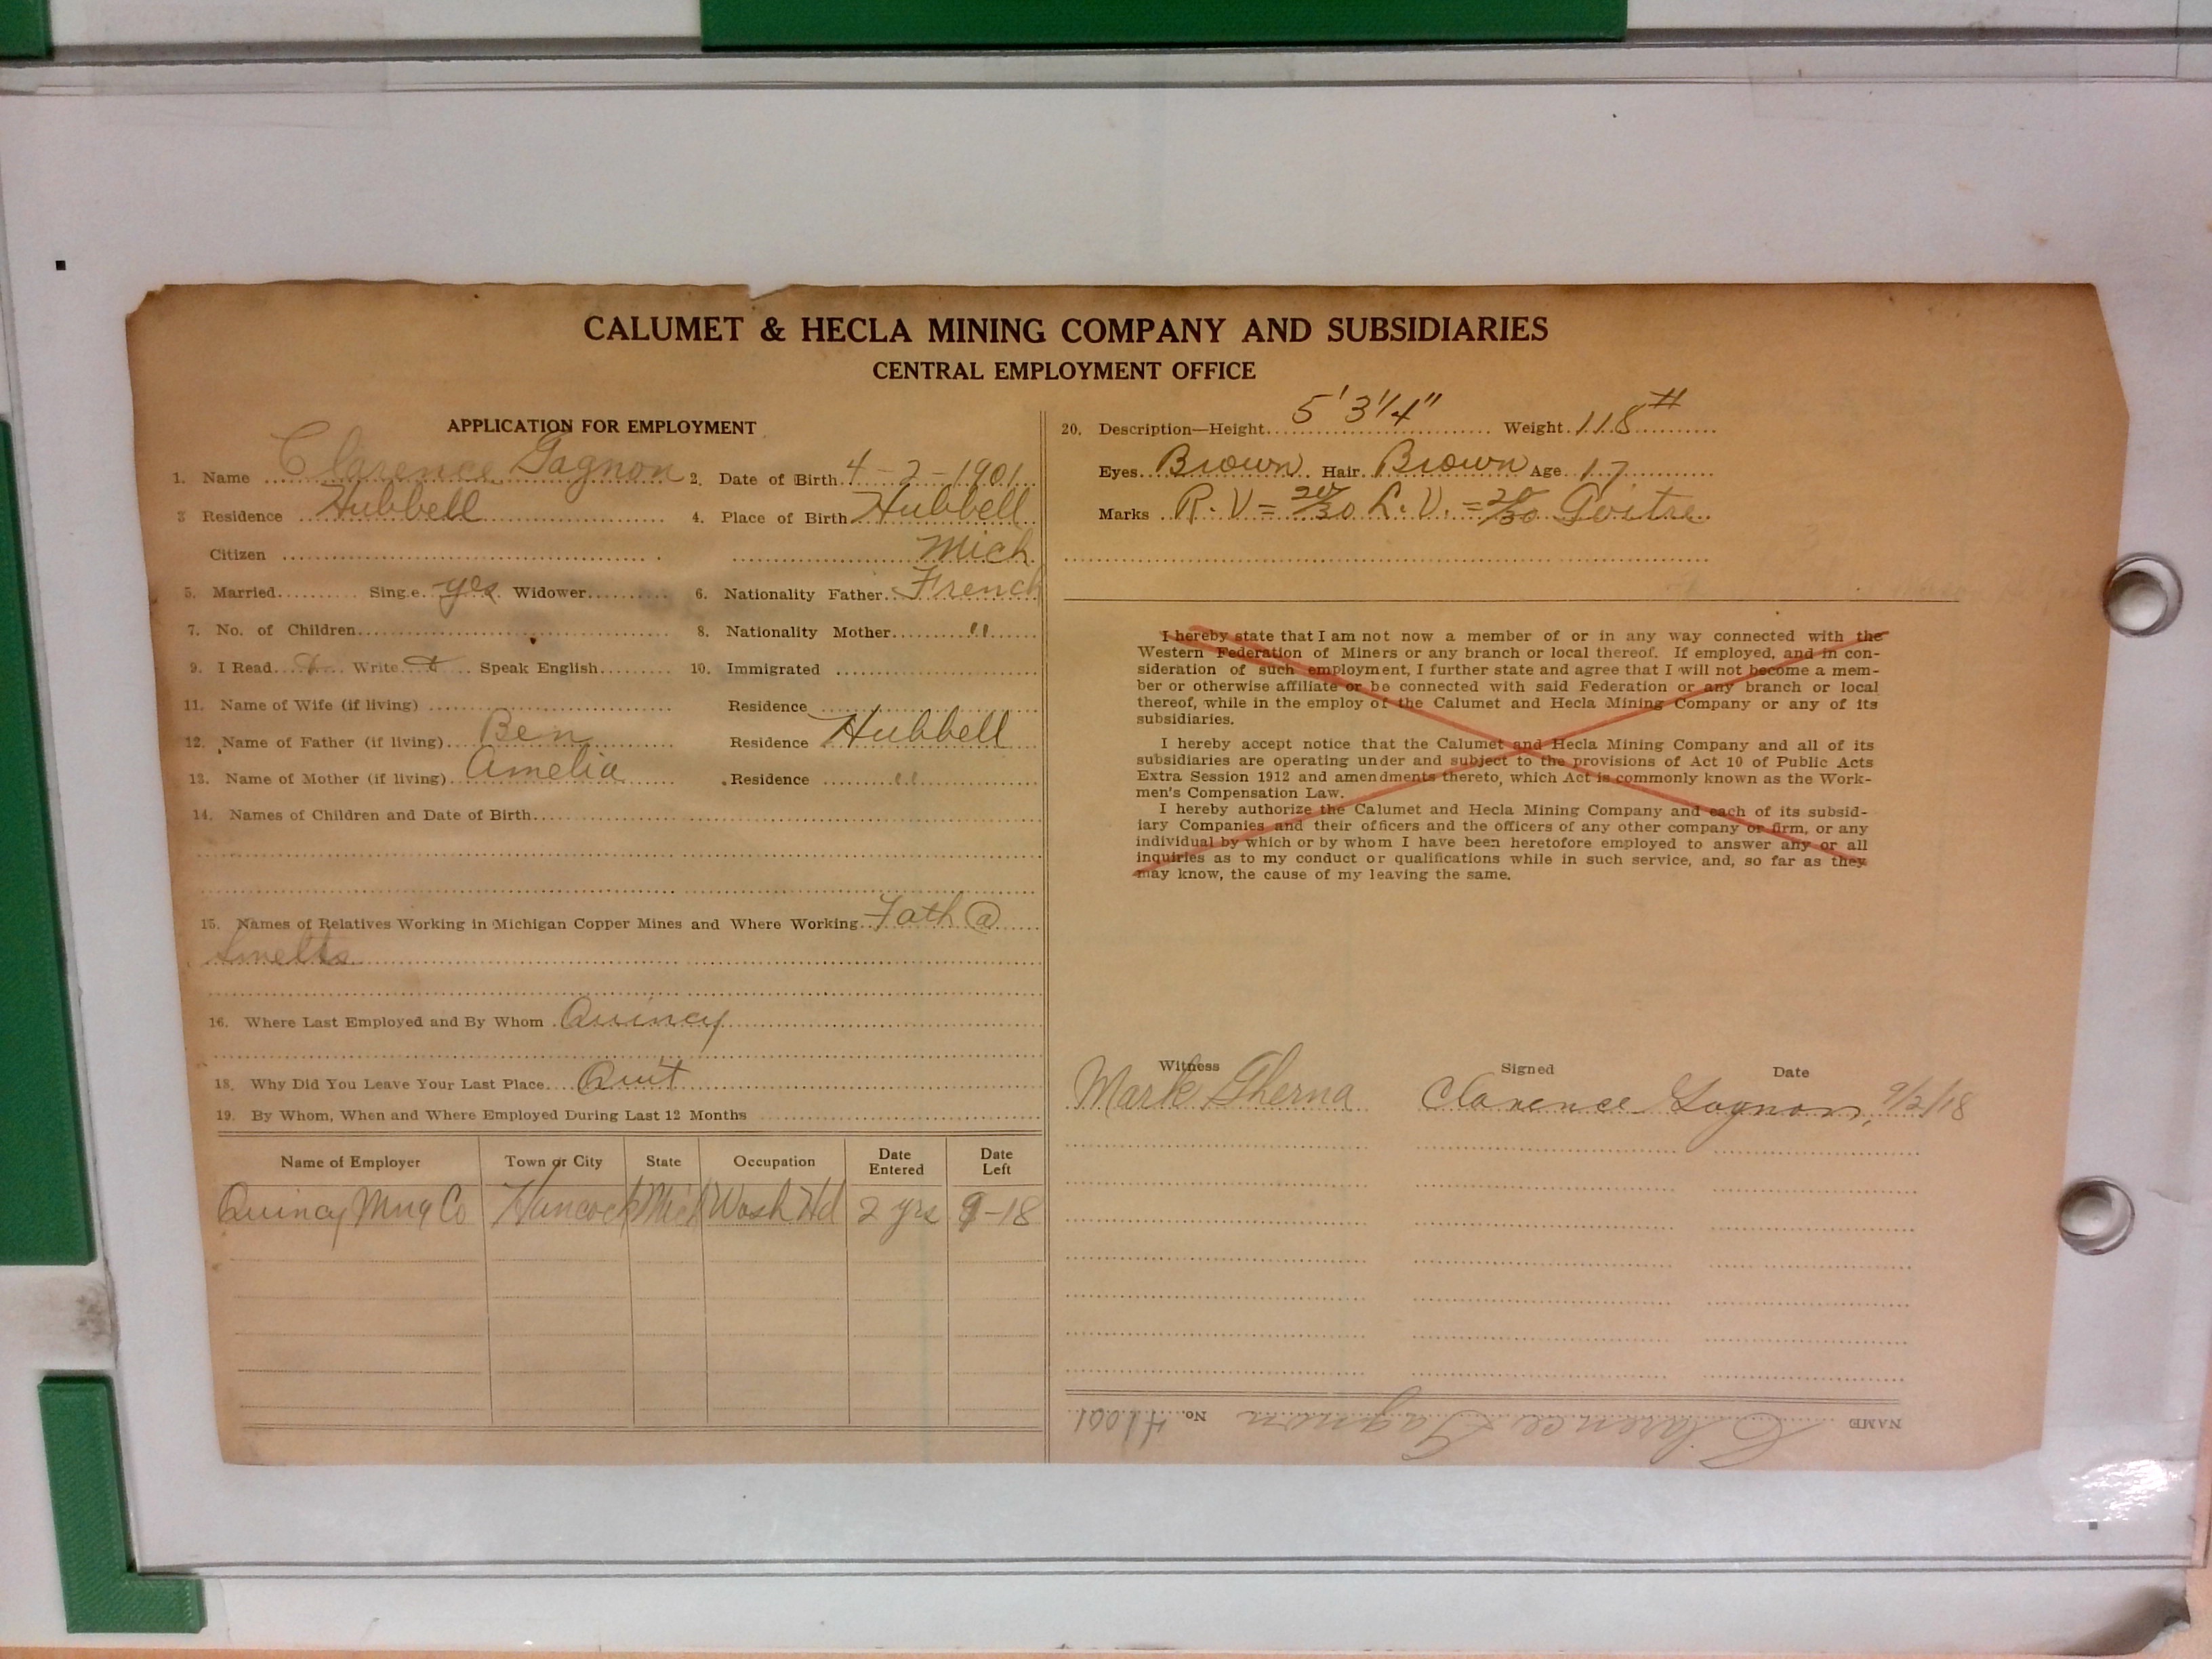 CALUMET & HECLA MINING COMPANY AND SUBSIDIARIES
CENTRAL EMPLOYMENT OFFICE
APPLICATION FOR EMPLOYMENT
1. Name Clarence Gagnon 2. Date of Birth 4-2-1901
3 Residence Hubbell 4. Place of Birth Hubbell
Citizen Mich
5. Married Sing e yes Widower 6. Nationality Father French
7. No. of Children 8. Nationality Mother "
9. I Read Write Speak English 10. Immigrated
11. Name of Wife (if living) Residence
12. Name of Father (if living) Ben Residence Hubbell
13. Name of Mother (if living) Amelia Residence "
14. Names of Children and Date of Birth
15. Names of Relatives Working in Michigan Copper Mines and Where Working Fath @
16. Where Last Employed and By Whom Quincy
18. Why Did You Leave Your Last Place Quit
19. By Whom, When and Where Employed During Last 12 Months
Name of Employer Town or City State Occupation Date Entered Date Left
Quincy Mng Co Hancock Mich Wash Hd 2 yrs 9-18
20. Description—Height 5' 3 1/4" Weight 118#
Eyes Brown Hair Brown Age 17
Marks R. V = 20/30 L. V. = 20/30 Goitre
I hereby state that I am not now a member of or in any way connected with the
Western Federation of Miners or any branch or local thereof. If employed, and in con-
sideration of such employment, I further state and agree that I will not become a mem-
ber or otherwise affiliate or be connected with said Federation or any branch or local
thereof, while in the employ of the Calumet and Hecla Mining Company or any of its
subsidiaries.
I hereby accept notice that the Calumet and Hecla Mining Company and all of its
subsidiaries are operating under and subject to the provisions of Act 10 of Public Acts
Extra Session 1912 and amendments thereto, which Act is commonly known as the Work-
men's Compensation Law.
I hereby authorize the Calumet and Hecla Mining Company and each of its subsid-
iary Companies and their officers and the officers of any other company or firm, or any
individual by which or by whom I have been heretofore employed to answer any or all
inquiries as to my conduct or qualifications while in such service, and, so far as they
may know, the cause of my leaving the same.
Witness Signed Date
Mark Gherna Clarence Gagnon, 9/2/18
NAME Clarence Gagnon No. 41001